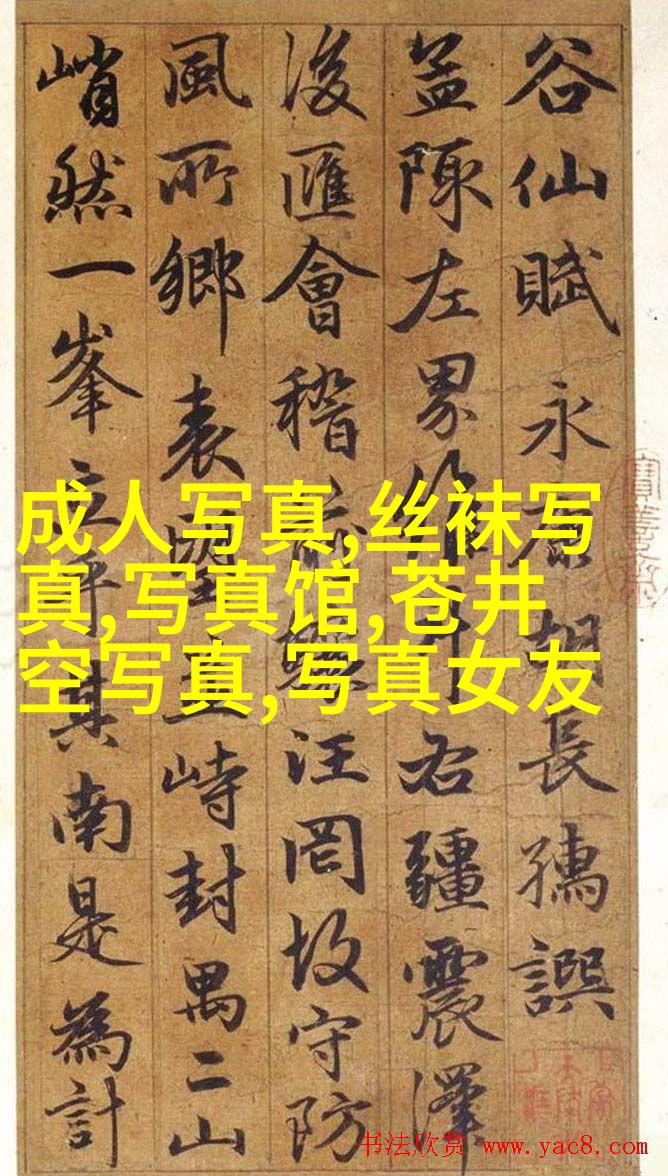 谷仙賦 永康胡長孺譔
左界右疆震澤
浚匯會稽汪罔故守防
風所鄉表望直峙封禺二山
峭然一峯立乎其南是為計
成人写真,丝袜写
真,写真馆,苍井
空写真,写真女友
书法欣赏 www.yac8.com